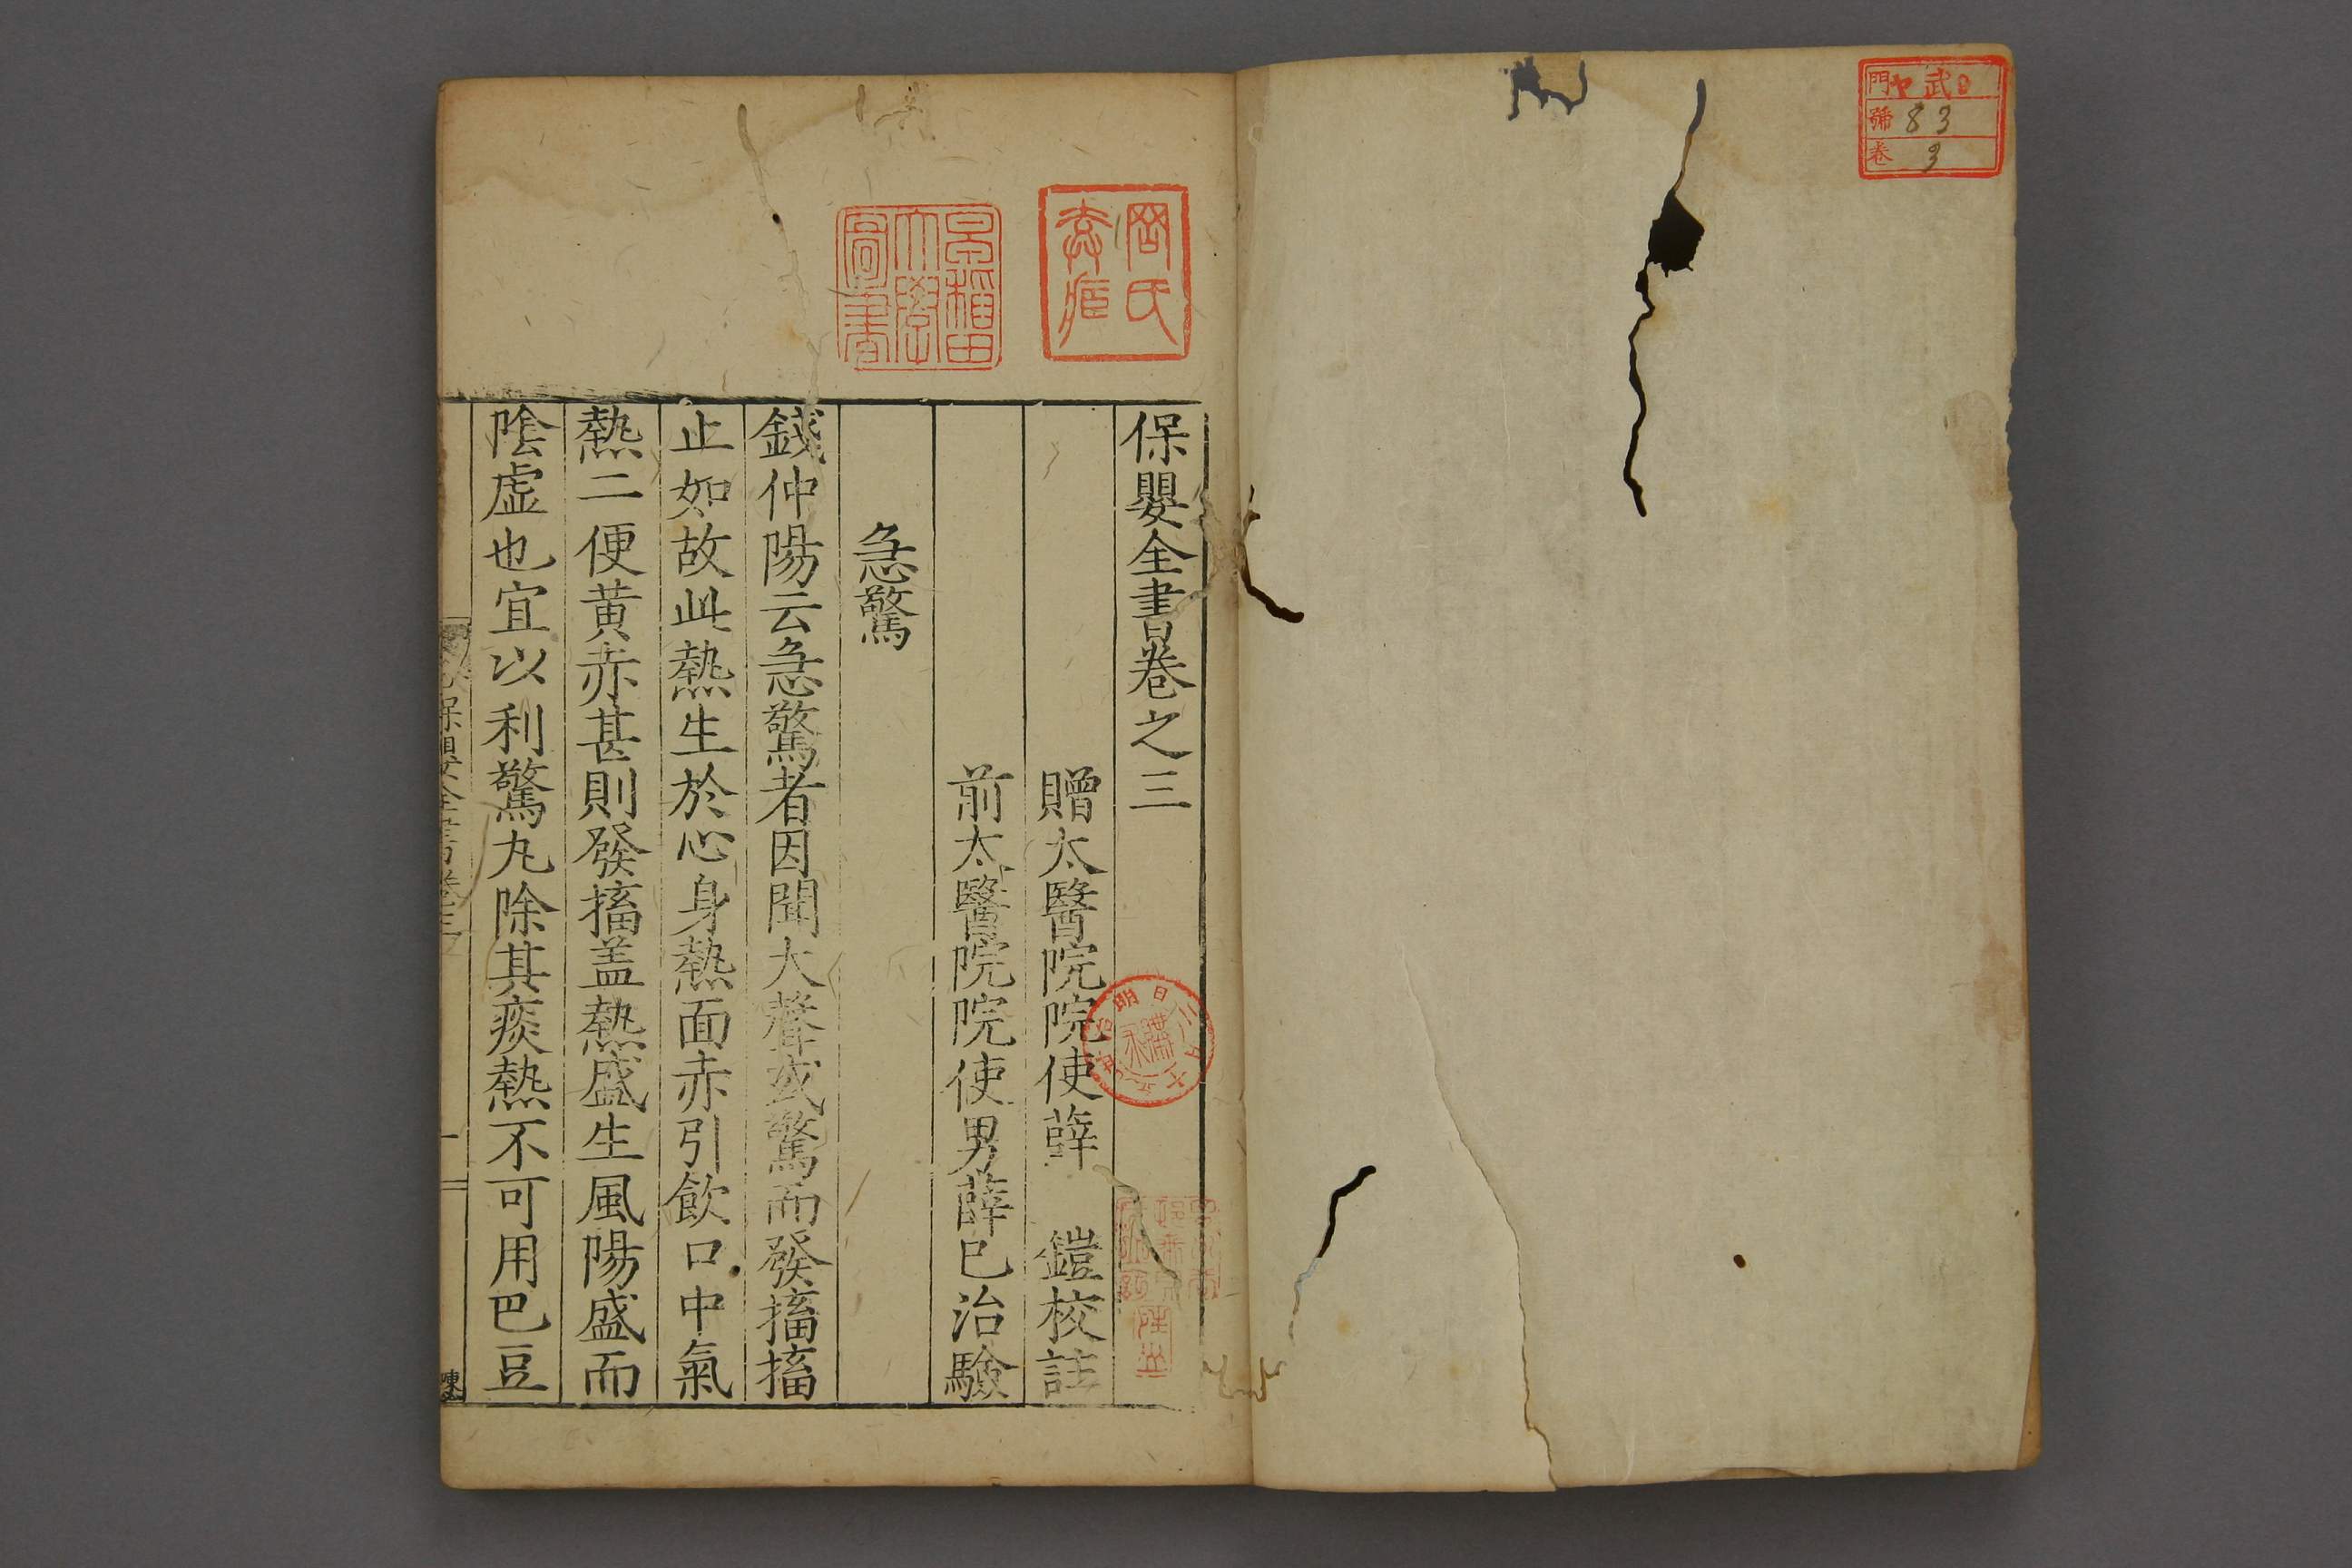 門 ヤ 武
號 83
卷 3
岡氏
早稲田
大學
圖書
保嬰全書卷之三
贈太醫院院使薛 鎧校註
前太醫院院使男薛巳治驗
急驚
錢仲陽云急驚者因聞大聲或驚而發搐搐
止如故此熱生於心身熱面赤引飲口中氣
熱二便黄赤甚則發搐盖熱盛生風陽盛而
隂虛也宜以利驚丸除其痰熱不可用巴豆
保嬰全書卷三